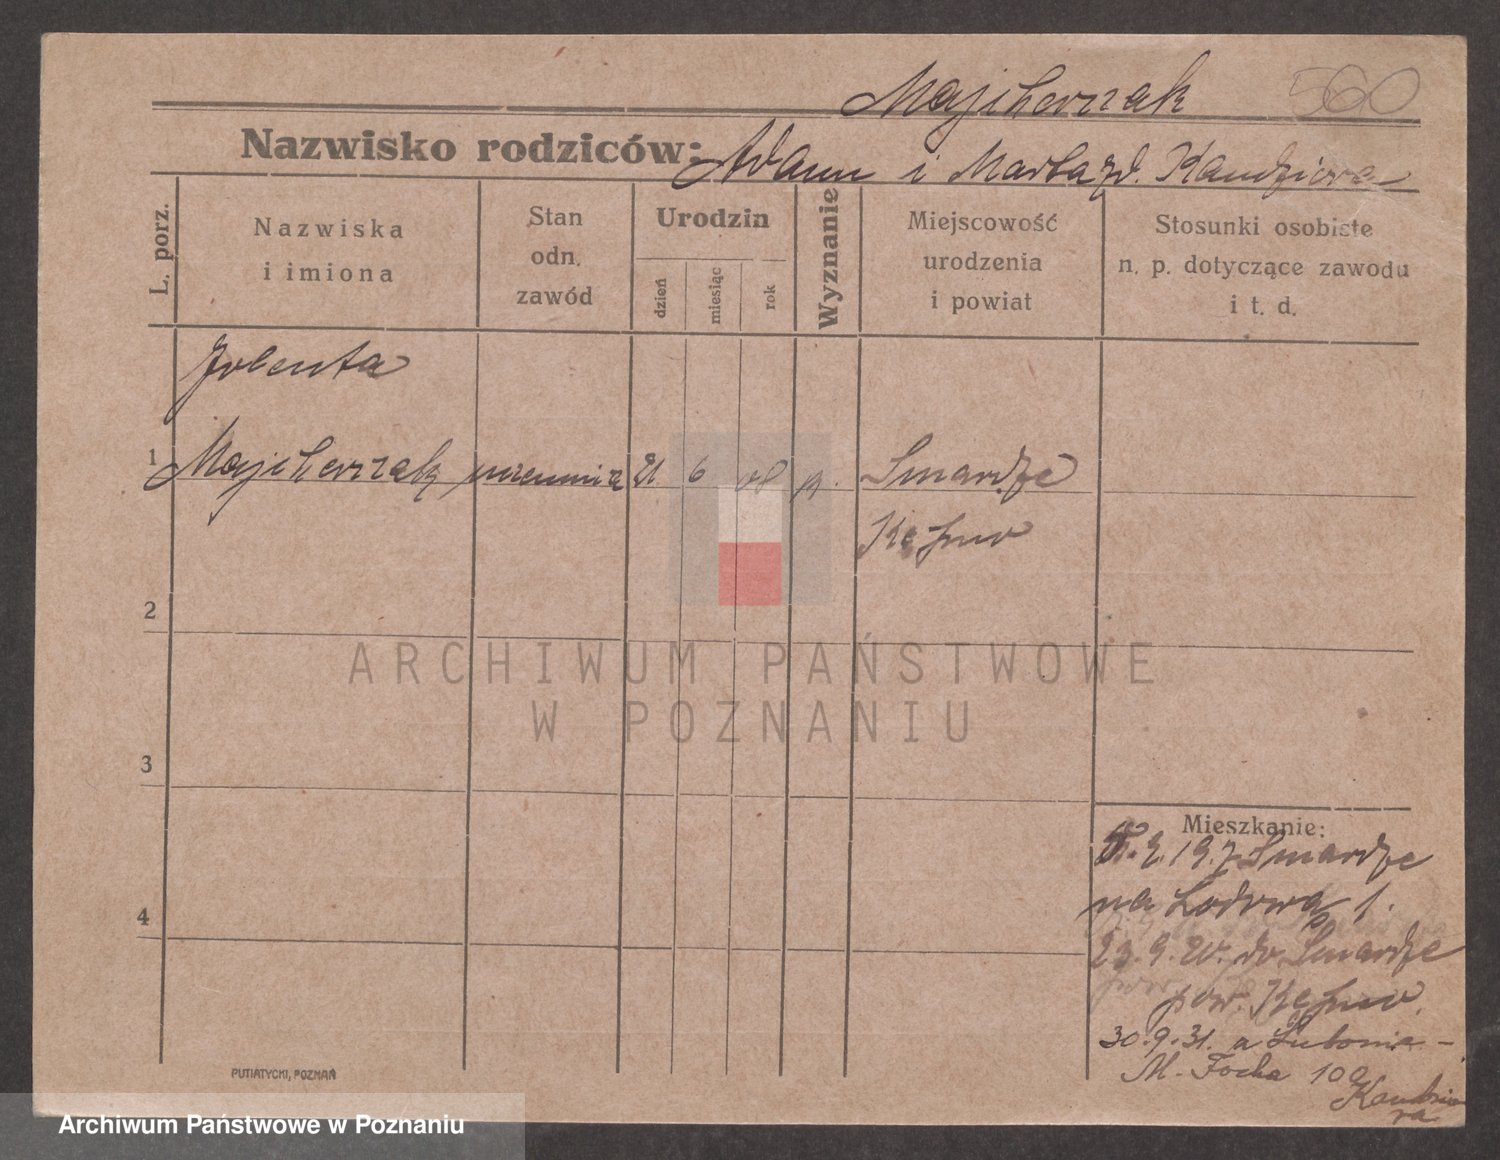 Majcherzak 560
Nazwisko rodziców: Adam i Marta zd. Kandziora
L. porz.
Nazwiska
i imiona
Stan
odn.
zawód
Urodzin
dzień
miesiąc
rok
Wyznanie
Miejscowość
urodzenia
i powiat
Stosunki osobiste
n. p. dotyczące zawodu
i t. d.
Jolenta
1 Majcherzak uczennica 21 6 08 Smardze
Kępno
2
ARCHIWUM PAŃSTWOWE
W POZNANIU
3
4
Mieszkanie:
19. z Smardze
na Łodowa 1.
23. 9. 20. do Smardze
pow. Kępno.
30. 9. 31. a Lubonia -
M. Focha 109
Kandzio
ra
PUTIATYCKI, POZNAŃ
Archiwum Państwowe w Poznaniu